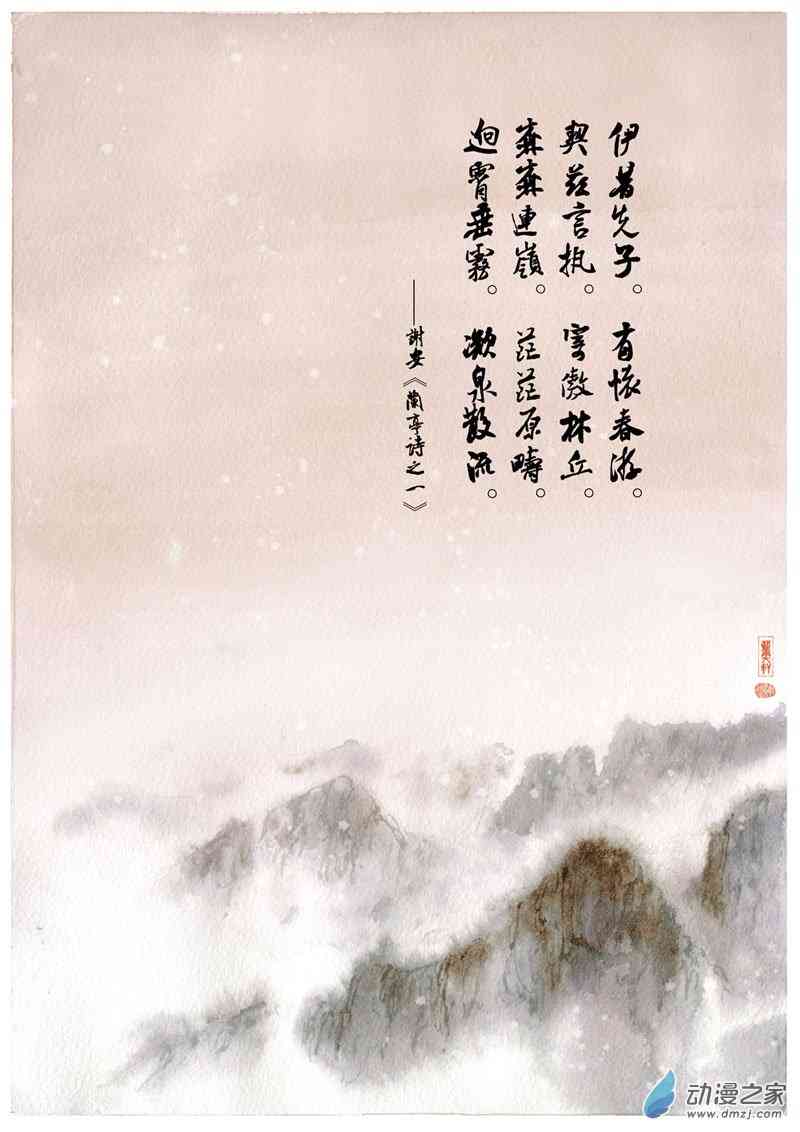 伊昔先子。有懷春游。
契茲言执。寄傲林丘。
森森連嶺。茫茫原疇。
迥霄垂霧。凝泉散流。
——謝安《蘭亭诗之一》
动漫之家
www.dmzj.com